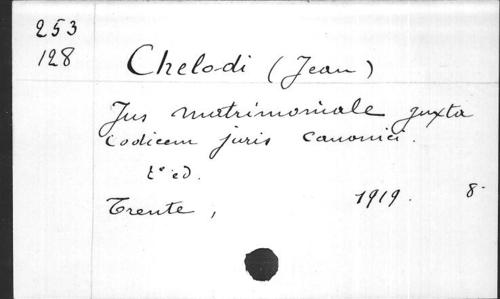 253
128
Chelodi (Jean)
Jus matrimoniale juxta
codicem juris canonici.
ed.
Trente, 1919. 8-